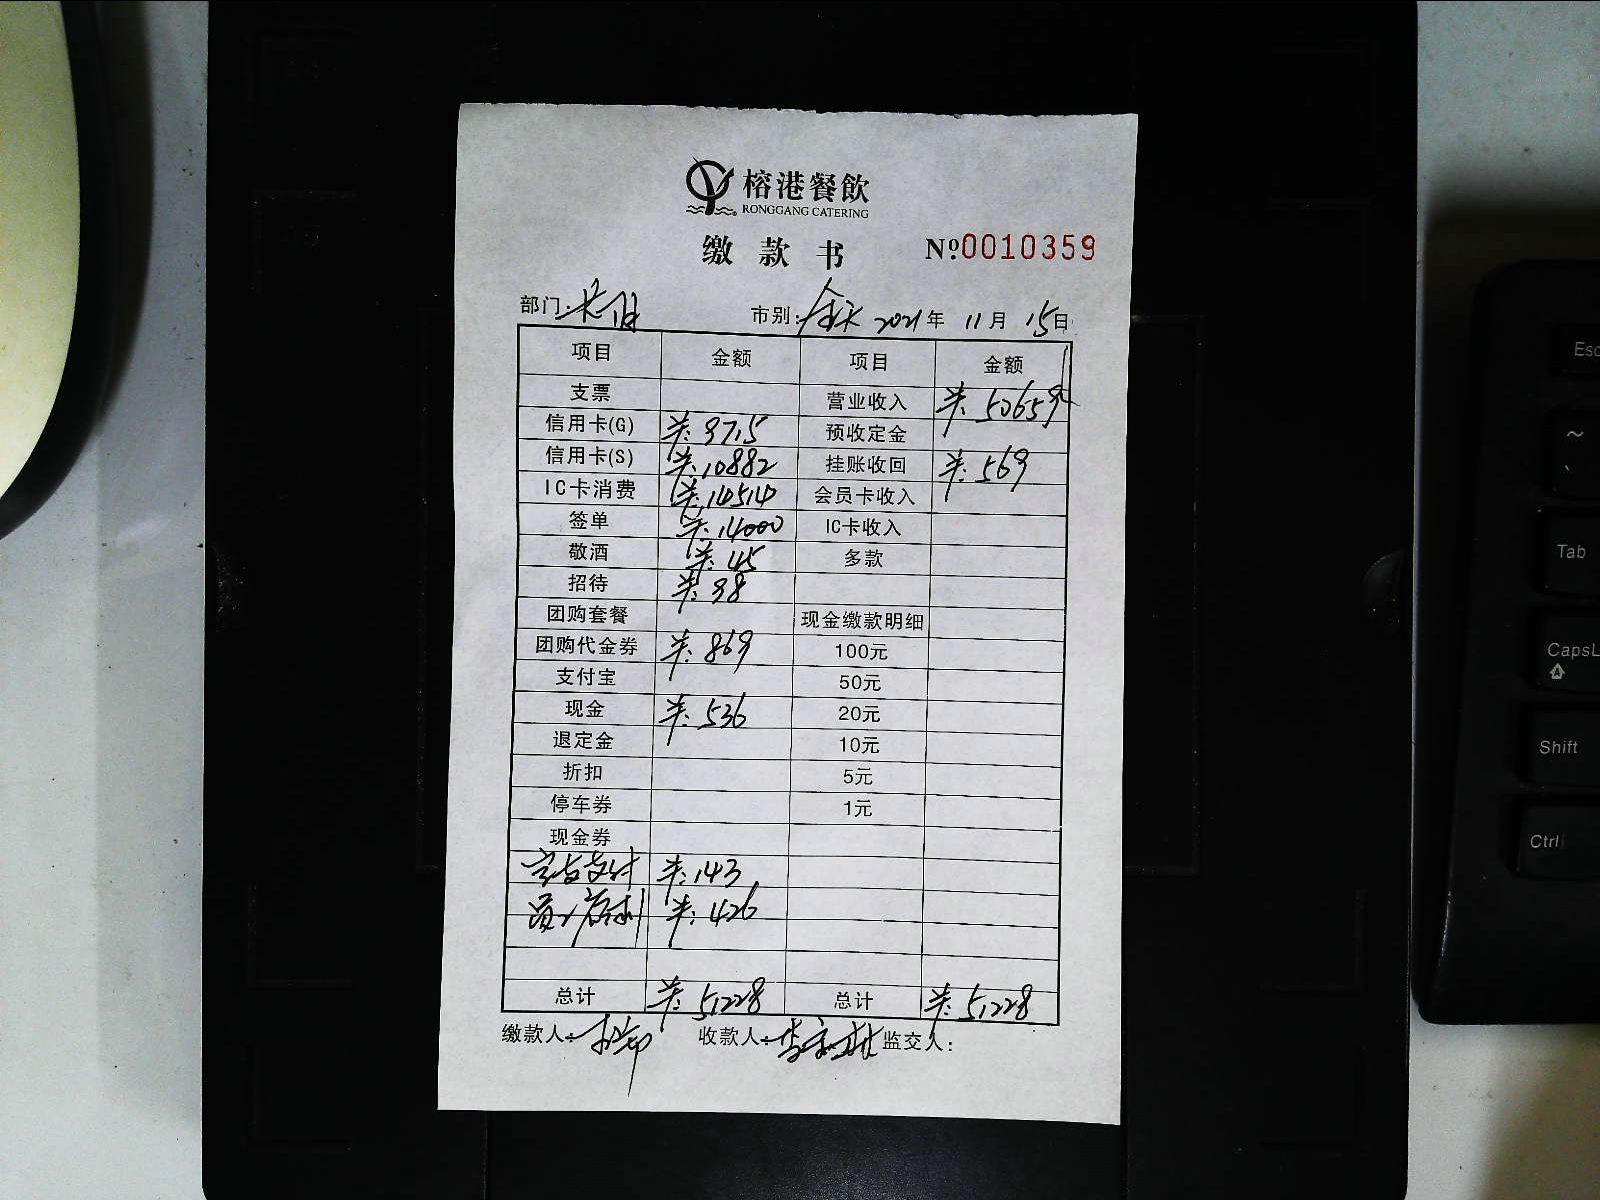 榕港餐飲
RONGGANG CATERING
缴款书 Nº0010359
部门: 市别:全天 2021年 11月 15日
项目 金额 项目 金额
支票 营业收入 ¥:50659
信用卡(G) ¥:9715 预收定金
信用卡(S) ¥:10882 挂账收回 ¥:569
IC卡消费 ¥:14514 会员卡收入
签单 ¥:14000 IC卡收入
敬酒 ¥:45 多款
招待 ¥:98
团购套餐 现金缴款明细
团购代金券 ¥:869 100元
支付宝 50元
现金 ¥:536 20元
退定金 10元
折扣 5元
停车券 1元
现金券
支付 ¥:143
员工 ¥:426
总计 ¥:51228 总计 ¥:51228
缴款人: 收款人: 监交人:
Esc
~
Tab
CapsL
Shift
Ctrl